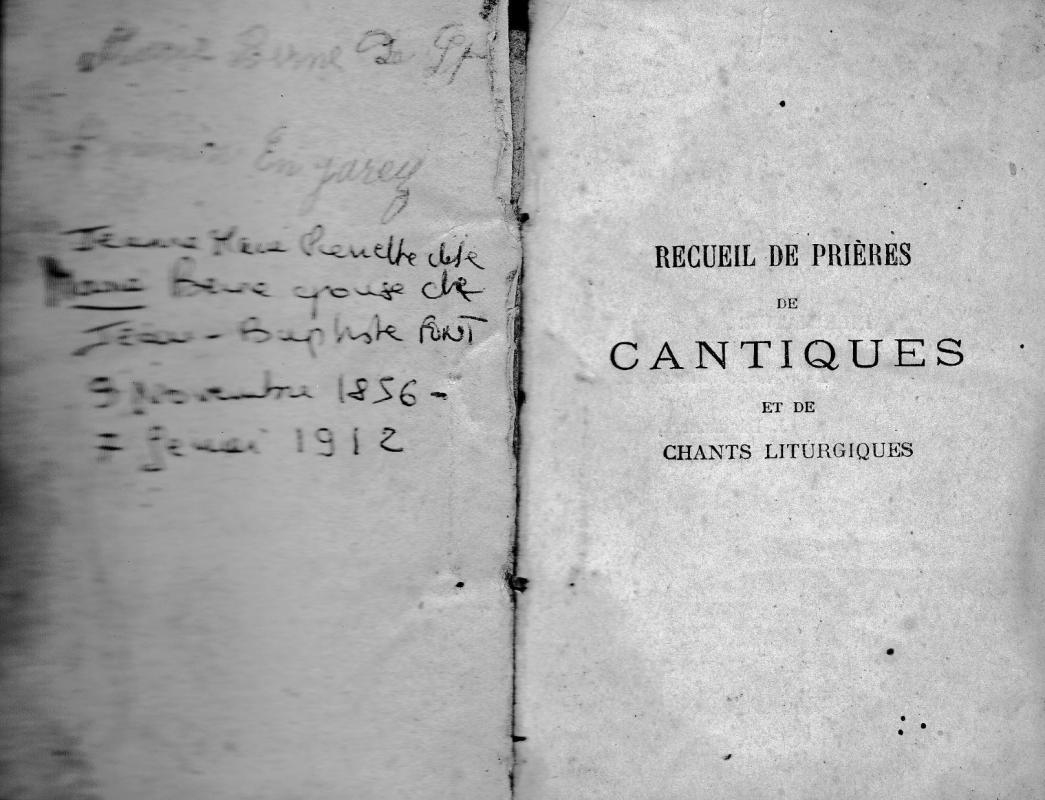 Marie Berne De
En garey
Jeanne Marie Pierrette dite
Marie Berne épouse de
Jean-Baptiste FONT
9 Novembre 1856 -
7 février 1912
RECUEIL DE PRIÈRES
DE
CANTIQUES
ET DE
CHANTS LITURGIQUES